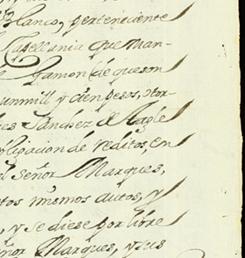 blanco, perteneciente
Capellania que man-
Ramon (de que son
unmill y cien pesos, otor-
Sanchez de Tagle
obligacion de reditos, en
el Señor Marques,
tos mismos autos, y
, y se diese por libre
eñor Marques, y sus